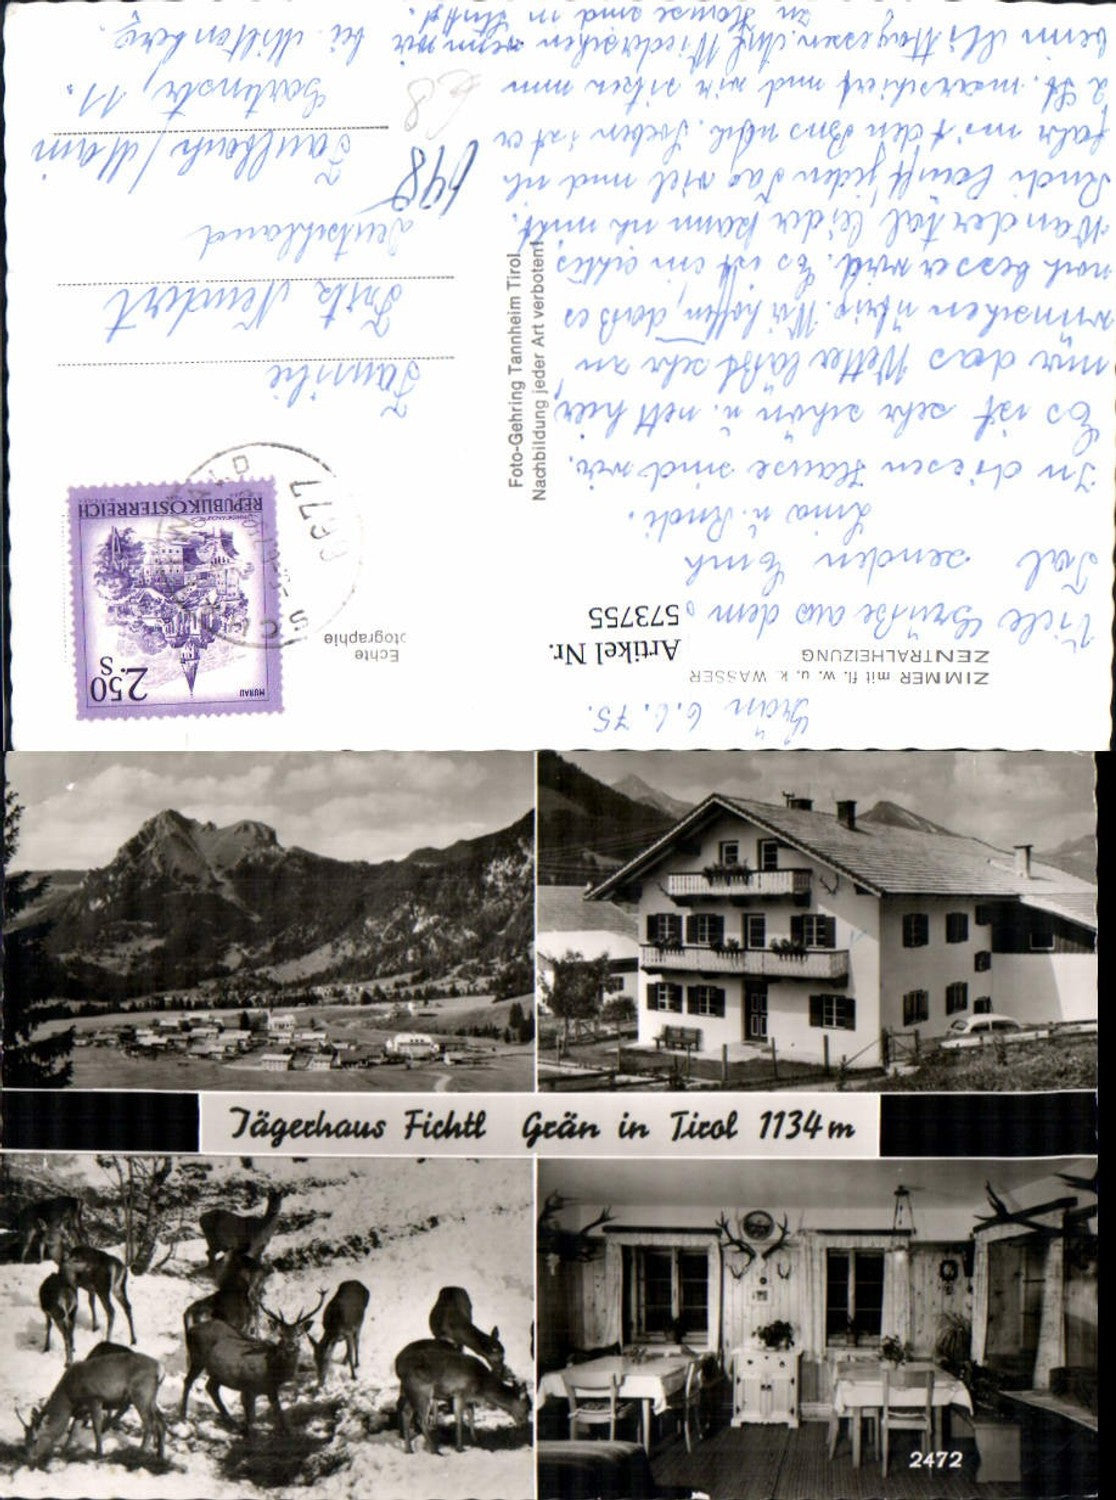 ZIMMER mit fl. w. u. k. WASSER
ZENTRALHEIZUNG
Grän 6.6.75.
Artikel Nr.
573755
Viele Grüße aus dem
Tal senden Euch
Lina u. Rudi.
In diesen Hause sind wir.
Es ist sehr schön u. nett hier,
nür das Wetter läßt sehr zu
wünschen übrig. Wir hoffen, daß es
noch besser wird. Es ist ein echtes
Wandertal leider kann ich nicht.
Rudi läuft jeden Tag viel und ich
fahr mit den Bus nach. Soeben ist er
2 St. marschiert und wir sitzen nun
beim Mittagessen. Auf Wiedersehen wenn wir
zu Hause sind in
Echte
otographie
MURAU
2.50
S
REPUBLIK ÖSTERREICH
6677
Familie
Fritz Neudert
Deutschland
Faulbach / Main
Gartenstr. 11.
bei Miltenberg.
698
68
Foto-Gehring Tannheim Tirol.
Nachbildung jeder Art verboten!
Jägerhaus Fichtl Grän in Tirol 1134 m
2472